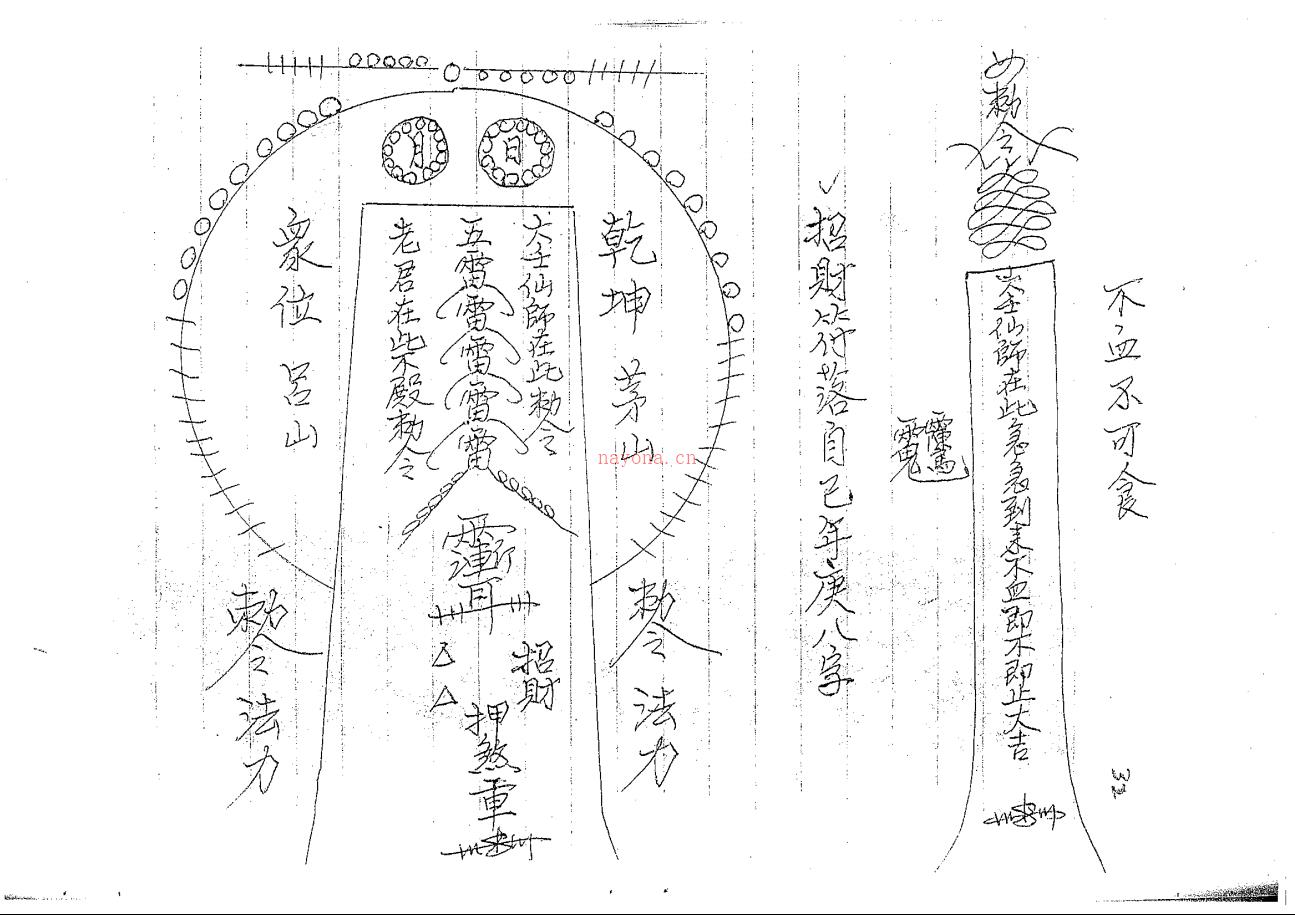 不血不可食
32
勅令
仙師在此急急到來不血即不即止大吉
招財符落自己年庚八字
日
月
乾坤茅山
勅令法力
仙師在此勅令
五雷雷雷雷雷
老君在此不殿勅令
招財
押煞
眾位呂山
勅令法力
nayona.cn